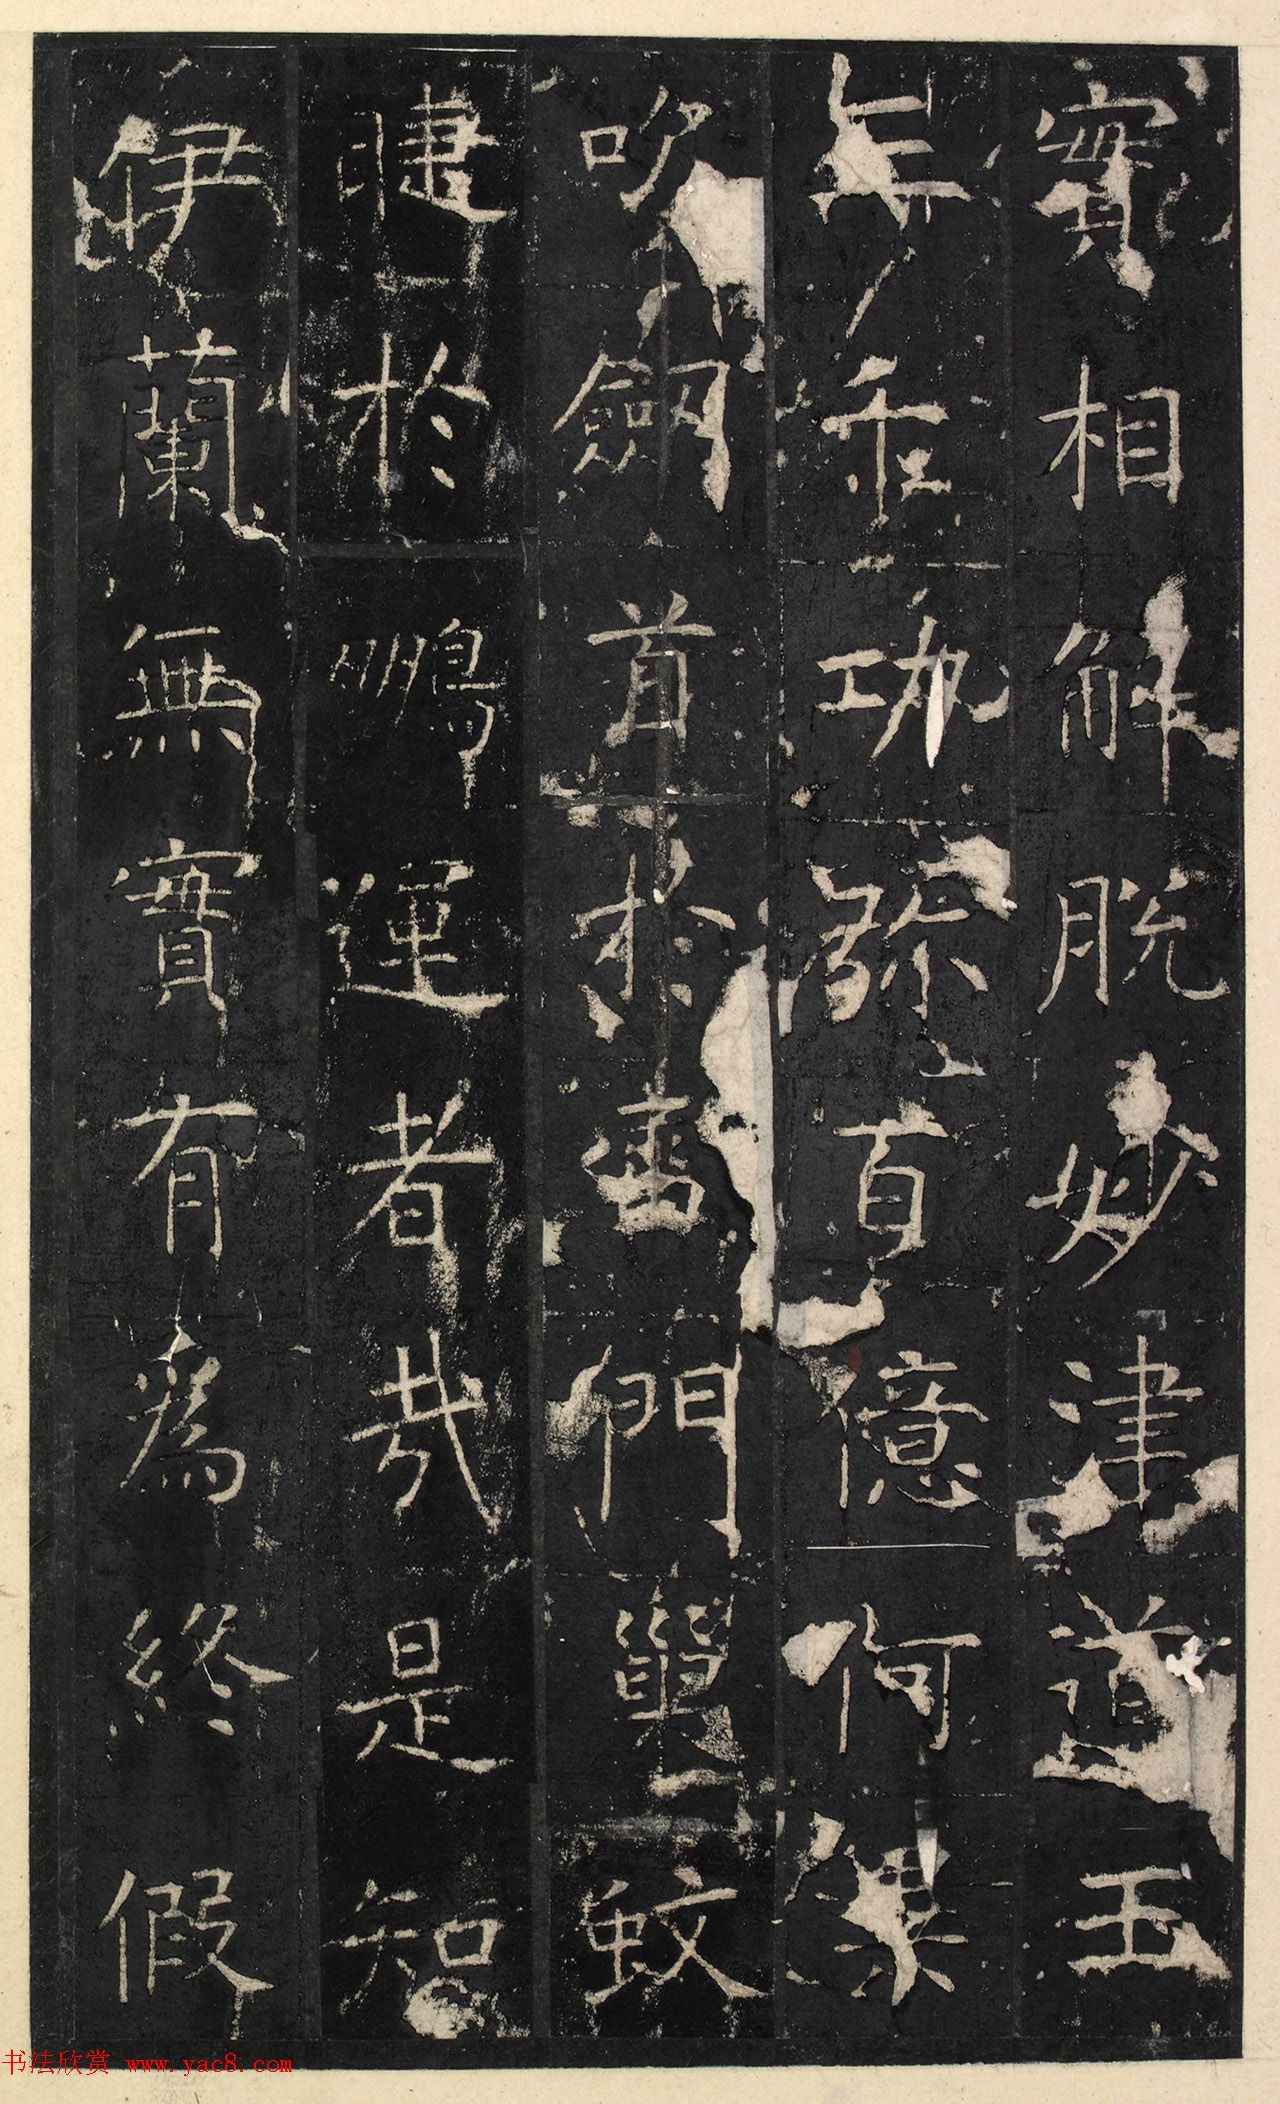 實相解脫妙津道王
三千功踰百億何異
吹劒首於雷門巢蚊
睫於鵬運者哉是知
伊蘭無實有爲終假
书法欣赏 www.yac8.com